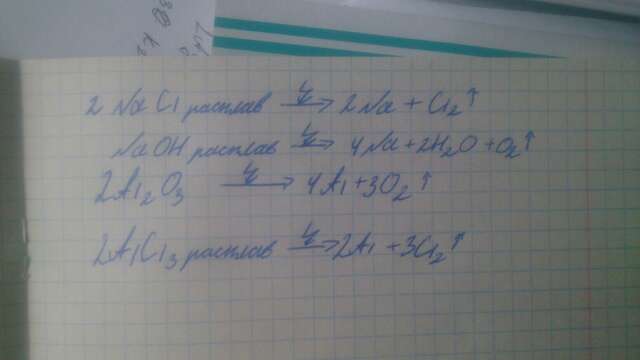 2 NaCl расплав → 2Na + Cl₂↑
NaOH расплав → 4Na + 2H₂O + O₂↑
2Al₂O₃ → 4Al + 3O₂↑
2AlCl₃ расплав → 2Al + 3Cl₂↑